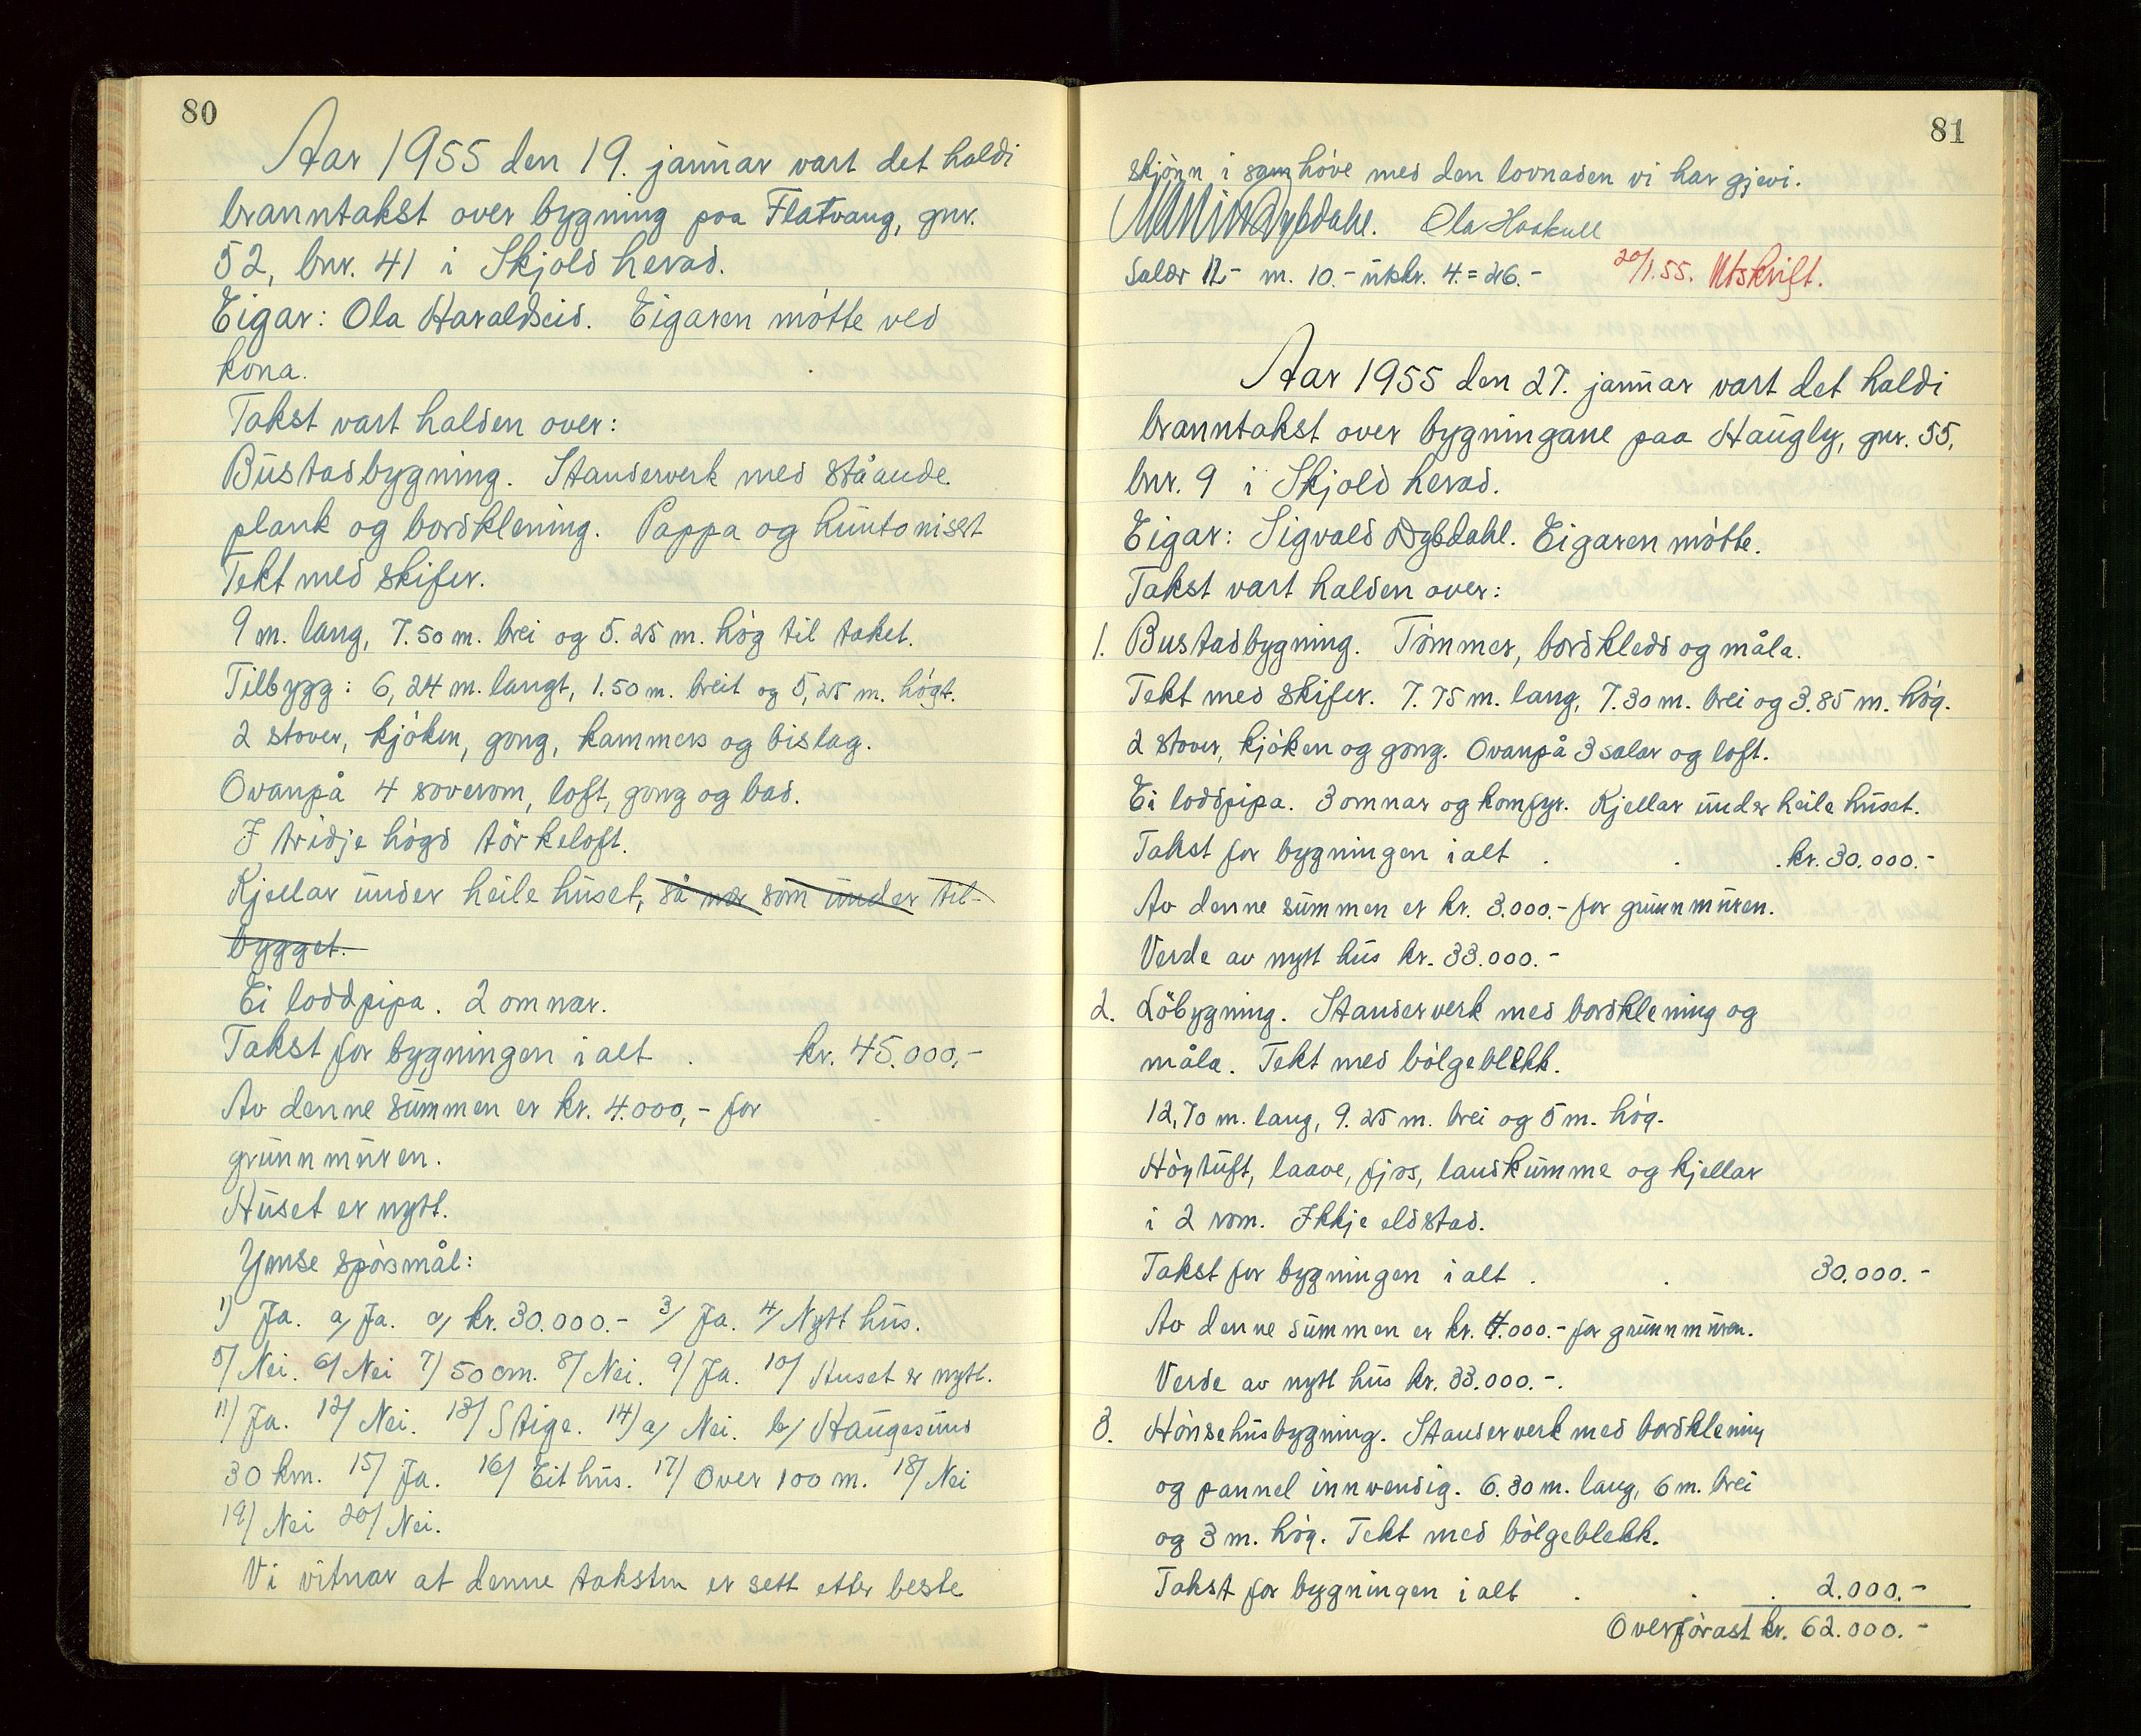 80
Aar 1955 den 19. januar vart det haldi
branntakst over bygning paa Flatvang, gnr.
52, bnr. 41 i Skjold herad.
Eigar: Ola Haraldseid. Eigaren møtte ved
kona.
Takst vart halden over:
Bustadbygning. Standerverk med ståande
plank og bordklening. Pappa og huntonisert
Tekt med skifer.
9 m. lang, 7.50 m. brei og 5.25 m. høg til taket.
Tilbygg: 6,24 m. langt, 1.50 m. breit og 5,25 m. høgt.
2 stover, kjøken, gong, kammers og bislag.
Ovanpå 4 soverom, loft, gong og bad.
I tridje høgd törkeloft.
Kjellar under heile huset, så nær som under til-
bygget.
Ei loddpipa. 2 omnar.
Takst for bygningen i alt . kr. 45.000,-
Av denne summen er kr. 4.000,- for
grunnmuren.
Huset er nytt.
Ymse spørsmål:
1) Ja. a, Ja. c, kr. 30.000.- 3/ Ja. 4/ Nytt hus.
5/ Nei. 6/ Nei 7/ 50 cm. 8/ Nei. 9/ Ja. 10/ Huset er nytt.
11/ Ja. 12/ Nei. 13/ Stige. 14/ a, Nei. b, Haugesund
30 km. 15/ Ja. 16/ Eit hus. 17/ Over 100 m. 18/ Nei
19/ Nei 20/ Nei.
Vi vitnar at denne taksten er sett etter beste
81
skjønn i samhøve med den lovnaden vi har gjevi.
Martin Dybdahl. Ola Haakull
Salær 12.- m. 10.- utskr. 4. = 26.- 20/1.55. Utskrift.
Aar 1955 den 27. januar vart det haldi
branntakst over bygningane paa Haugly, gnr. 55,
bnr. 9 i Skjold herad.
Eigar: Sigvald Dybdahl. Eigaren møtte.
Takst vart halden over:
1. Bustadbygning. Tømmer, bordkledd og måla.
Tekt med skifer. 7.75 m. lang, 7.30 m. brei og 3.85 m. høg.
2 stover, kjøken og gong. Ovanpå 3 salar og loft.
Ei loddpipa. 3 omnar og komfyr. Kjellar under heile huset.
Takst for bygningen i alt . . . kr. 30.000.-
Av denne summen er kr. 3.000.- for grunnmuren.
Verde av nytt hus kr. 33.000.-
2. Löbygning. Standerverk med bordklening og
måla. Tekt med bølgeblekk.
12,70 m. lang, 9.25 m. brei og 5 m. høg.
Høytuft, laave, fjos, landkumme og kjellar
i 2 rom. Ikkje eldstad.
Takst for bygningen i alt . . 30.000.-
Av denne summen er kr. 4.000.- for grunnmuren.
Verde av nytt hus kr. 33.000.-.
3. Hønsehusbygning. Standerverk med bordklening
og pannel innvendig. 6.30 m. lang, 6 m. brei
og 3 m. høg. Tekt med bølgeblekk.
Takst for bygningen i alt . . . 2.000.-
Overførast kr. 62.000.-